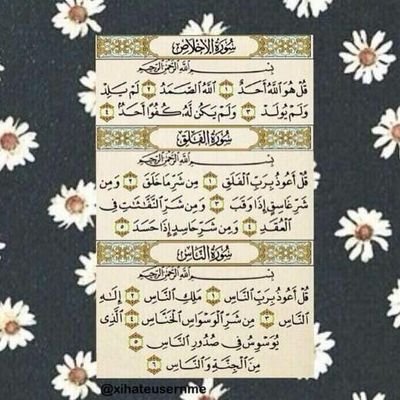 سُورَةُ الإِخْلَاصِ
بِسْمِ ٱللَّهِ ٱلرَّحْمَٰنِ ٱلرَّحِيمِ
قُلْ هُوَ ٱللَّهُ أَحَدٌ ١ ٱللَّهُ ٱلصَّمَدُ ٢ لَمْ يَلِدْ
وَلَمْ يُولَدْ ٣ وَلَمْ يَكُن لَّهُۥ كُفُوًا أَحَدٌۢ ٤
سُورَةُ الفَلَقِ
بِسْمِ ٱللَّهِ ٱلرَّحْمَٰنِ ٱلرَّحِيمِ
قُلْ أَعُوذُ بِرَبِّ ٱلْفَلَقِ ١ مِن شَرِّ مَا خَلَقَ ٢ وَمِن
شَرِّ غَاسِقٍ إِذَا وَقَبَ ٣ وَمِن شَرِّ ٱلنَّفَّٰثَٰتِ فِى
ٱلْعُقَدِ ٤ وَمِن شَرِّ حَاسِدٍ إِذَا حَسَدَ ٥
سُورَةُ النَّاسِ
بِسْمِ ٱللَّهِ ٱلرَّحْمَٰنِ ٱلرَّحِيمِ
قُلْ أَعُوذُ بِرَبِّ ٱلنَّاسِ ١ مَلِكِ ٱلنَّاسِ ٢ إِلَٰهِ
ٱلنَّاسِ ٣ مِن شَرِّ ٱلْوَسْوَاسِ ٱلْخَنَّاسِ ٤ ٱلَّذِى
يُوَسْوِسُ فِى صُدُورِ ٱلنَّاسِ ٥
مِنَ ٱلْجِنَّةِ وَٱلنَّاسِ ٦
@xihateusernme